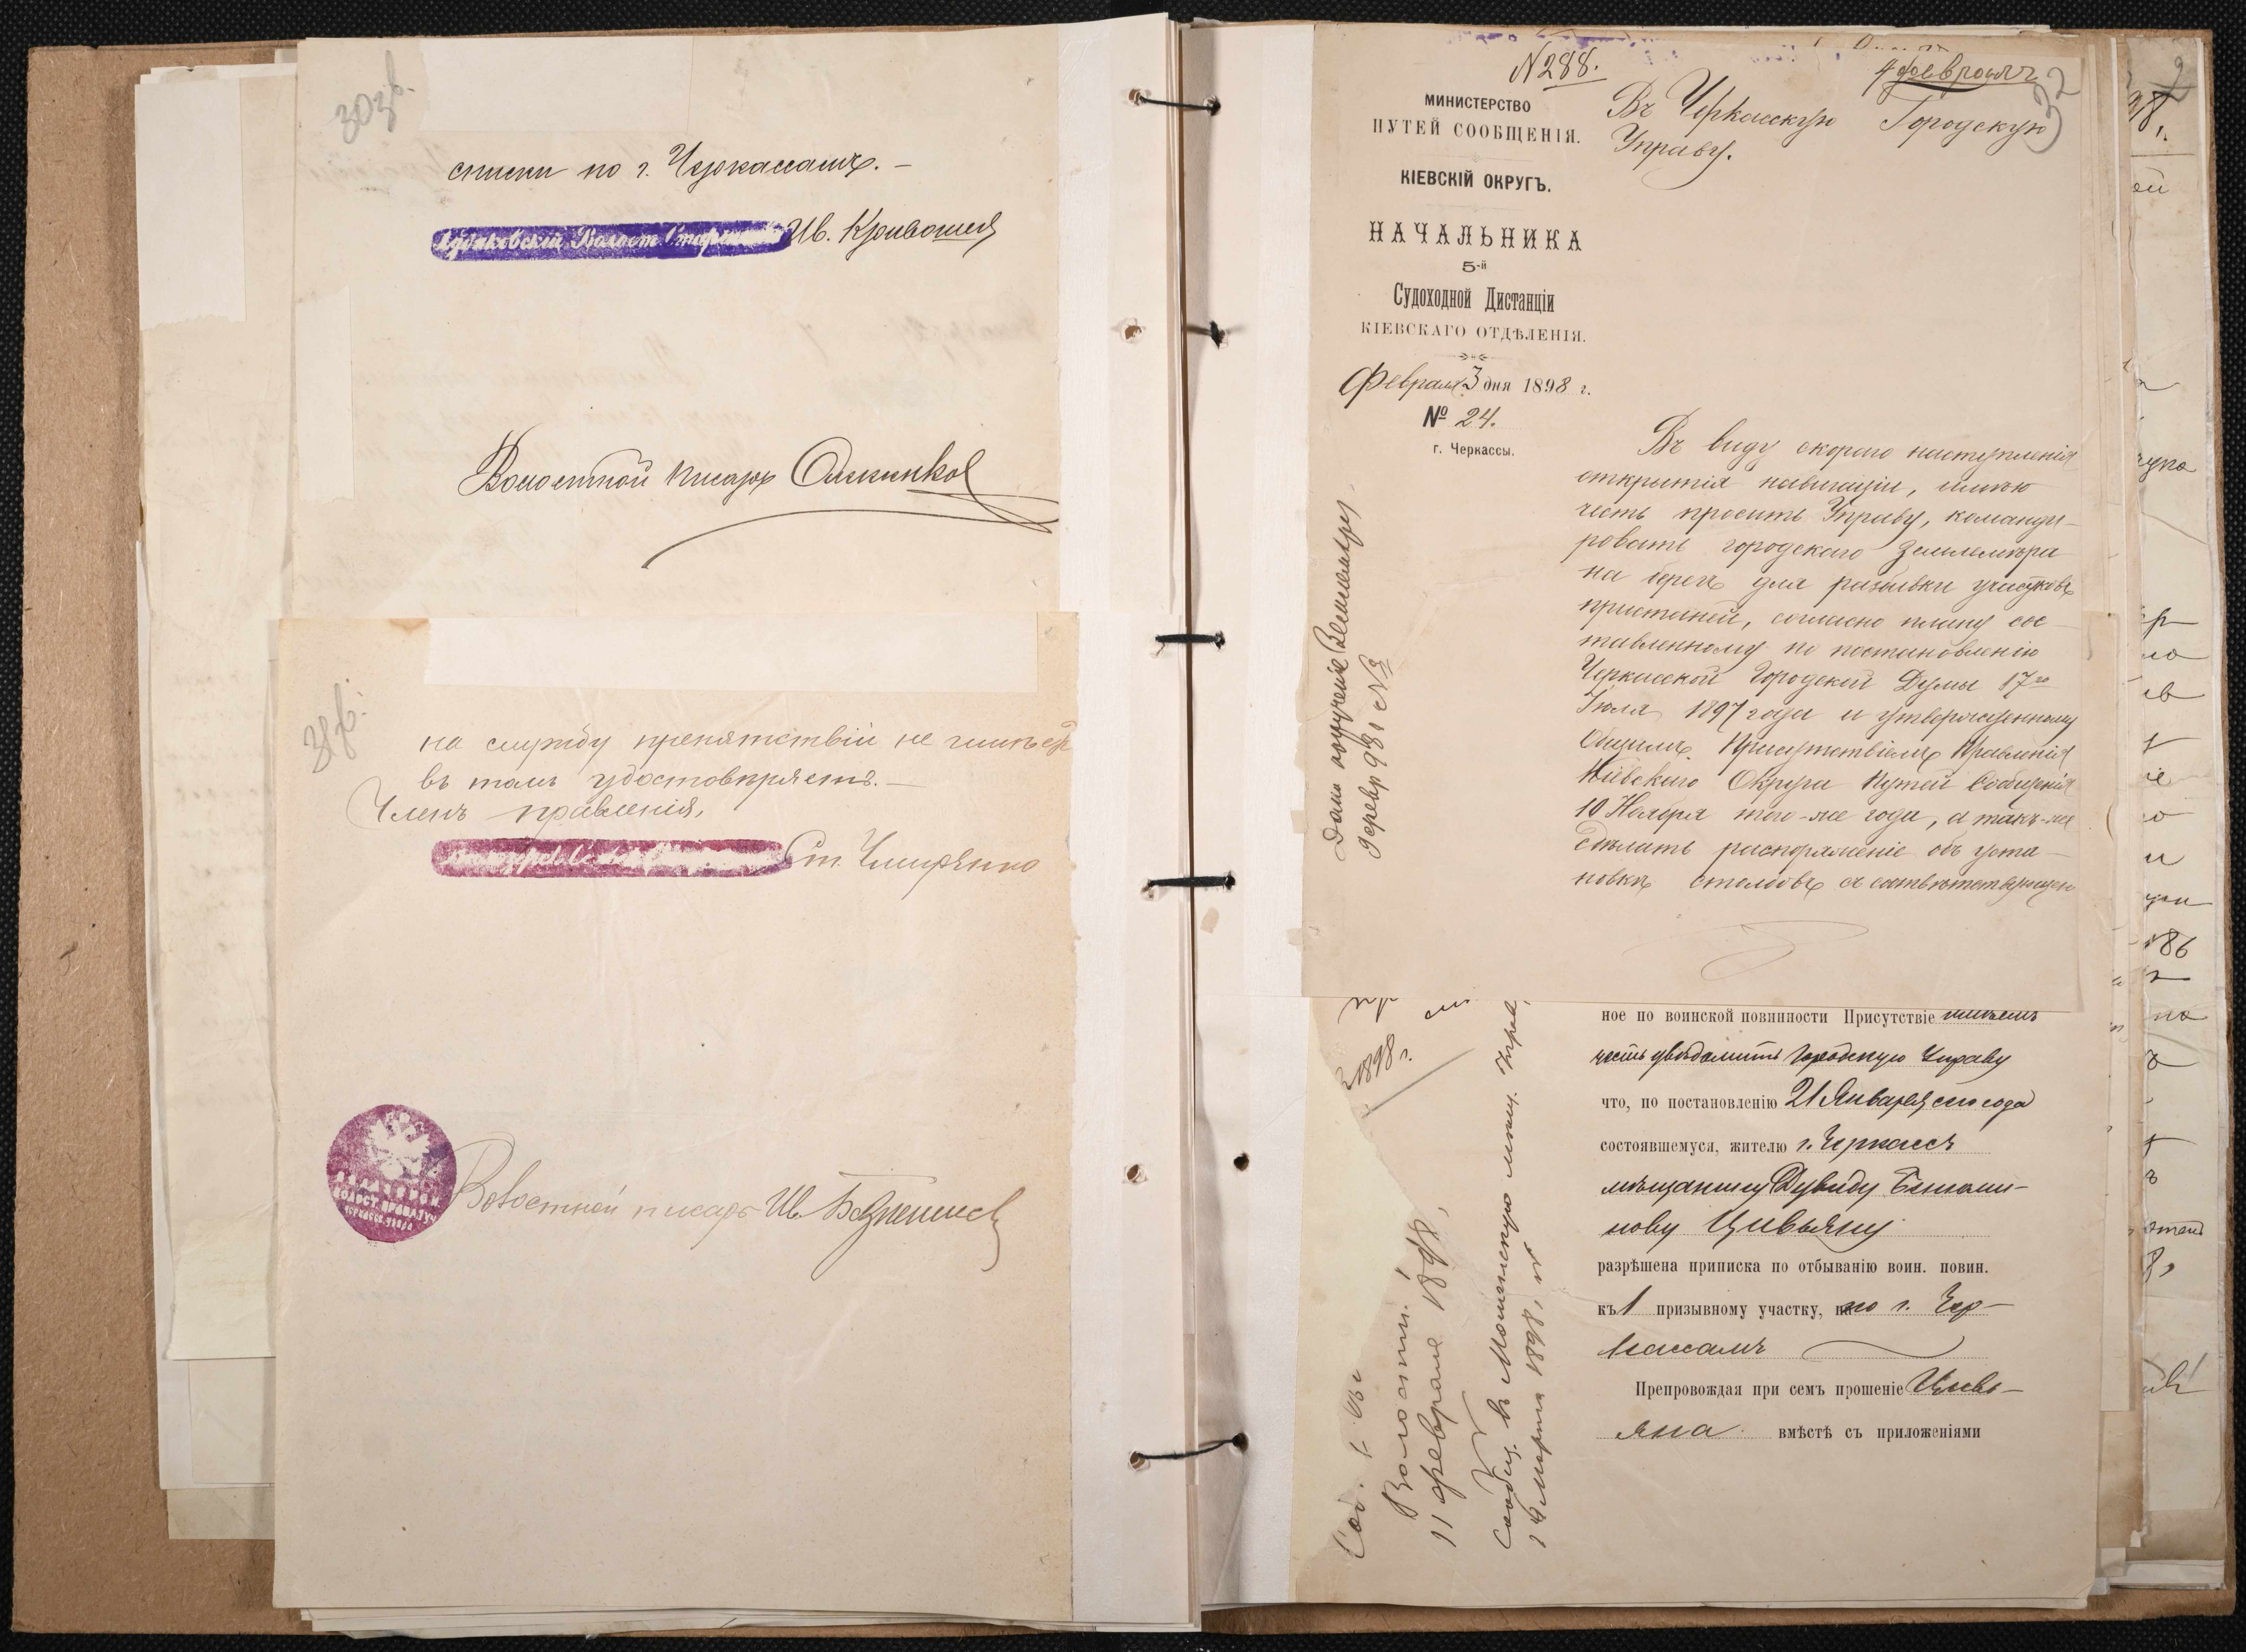 30зв.
списки по г. Черкассамъ. —
Волост. Ив. Кривошея
Волостной писарь
31зв.
на службу препятствій не имѣетъ
въ томъ удостовѣряетъ. —
Членъ правленія,
Ст. Чмиренко
ВОЛОСТ. ПРАВЛ.
Волостной писарь Ив.
N288.
4 февраля
32
МИНИСТЕРСТВО
ПУТЕЙ СООБЩЕНІЯ.
КІЕВСКІЙ ОКРУГЪ.
НАЧАЛЬНИКА
5-й
Судоходной Дистанціи
КІЕВСКАГО ОТДѢЛЕНІЯ.
Февраля 3 дня 1898 г.
№ 24.
г. Черкассы.
Въ Черкасскую Городскую
Управу.
Въ виду скораго наступленія
открытія навигаціи, имѣю
честь просить Управу, команди-
ровать городскаго Землемѣра
на берегъ для разбивки участковъ
пристаней, согласно плану сос-
тавленному по постановленію
Черкасской Городской Думы 17го
Іюля 1897 года и утвержденному
Общимъ Присутствіемъ Правленія
Кіевскаго Округа Путей Сообщенія
10 Ноября того-же года, а такъ-же
сдѣлать распоряженіе объ уста-
новкѣ столбовъ съ соотвѣтствующею
Дано порученіе Землемѣру
№
1898 г.
Волости.
11 февраля 1898,
Сообщ. въ Мошенскую мѣщ. Управ,
14 марта 1898, №
ное по воинской повинности Присутствіе имѣетъ
честь увѣдомить Городскую Управу
что, по постановленію 21 Января сего года
состоявшемуся, жителю г. Черкассъ
мѣщанину Дувиду Беніами-
нову Цивьяну
разрѣшена приписка по отбыванію воин. повин.
къ 1 призывному участку, по г. Чер-
кассамъ
Препровождая при семъ прошеніе Цивь-
яна вмѣстѣ съ приложеніями